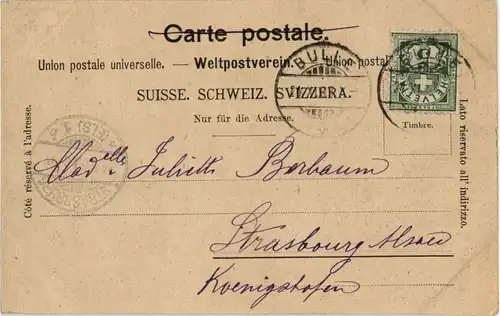 Carte postale.
Union postale universelle. — Weltpostverein. — Union postal
SUISSE. SCHWEIZ. SVIZZERA.
Nur für die Adresse.
Timbre.
Côté réservé à l'adresse.
Lato riservato all' indirizzo.
BULLE
Madelle Juliette Berbaum
Strasbourg Alsace
Koenigshofen